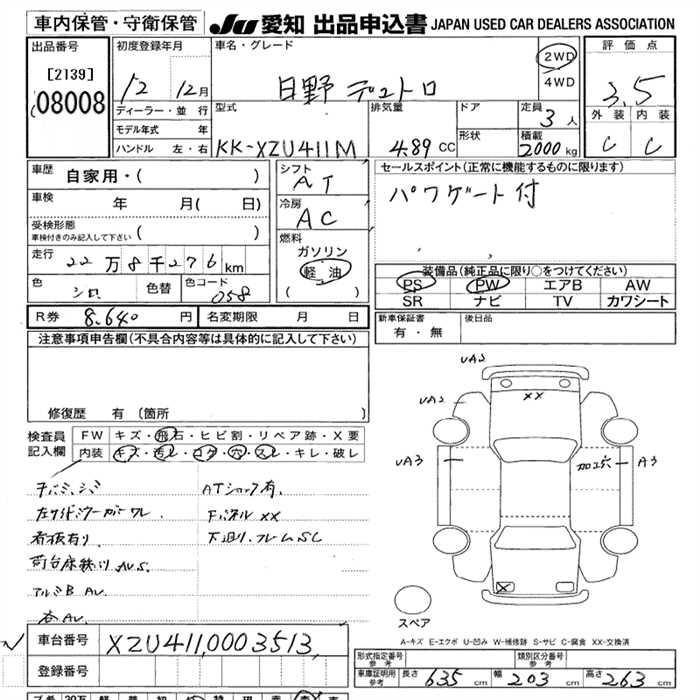 車内保管・守衛保管 JU 愛知 出品申込書 JAPAN USED CAR DEALERS ASSOCIATION
出品番号 初度登録年月 車名・グレード 評価点
[2139] 12 12月 日野 デュトロ 2WD 3.5
08008 4WD
ディーラー・並行 型式 排気量 ドア 定員 3人 外装 内装
モデル年式 年 形状 積載
ハンドル 左・右 KK-XZU411M 4.89 CC 2000kg C C
車歴 自家用・( ) シフト AT セールスポイント(正常に機能するものに限ります)
車検 年 月( 日) 冷房 AC パワゲート付
受検形態 ( )
車検付きのみ記入して下さい
燃料 ガソリン
走行 22万8千276km 軽油 装備品(純正品に限り○をつけてください)
色 シロ 色替 色コード 058 ( ) PS PW エアB AW
SR ナビ TV カワシート
R券 8,640 円 名変期限 月 日 新車保証書 後日品
有・無
注意事項申告欄(不具合内容等は具体的に記入して下さい)
修復歴 有(箇所
検査員 FW キズ・飛石・ヒビ割・リペア跡・X要
記入欄 内装 キズ・汚レ・コゲ・穴・スレ・キレ・破レ
ATショック有.
左サイドミラーカバーワレ 下パネルXX
看板有り 下廻り,フレームSC
荷台床鉄ハリ AU,S.
アルミB AU
UA2
UA2
XX
UA3
加工穴 A3
X
スペア
A-キズ E-エクボ U-凹み W-補修跡 S-サビ C-腐食 XX-交換済
車台番号 XZU411,0003513,
登録番号
形式指定番号 参考 類別区分番号 参考
車庫証明用 参考 長さ 635cm 幅 203cm 高さ 263cm